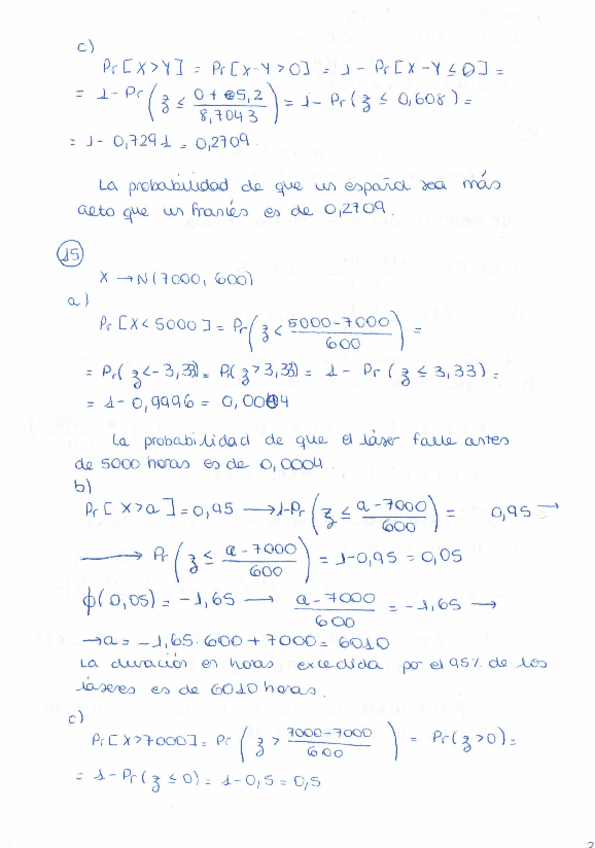 c)
Pr[X>Y] = Pr[X-Y>0] = 1- Pr[X-Y ≤ 0] =
= 1- Pr(z ≤ (0+5,2)/8,7043) = 1- Pr(z ≤ 0,608) =
= 1- 0,7291 = 0,2709.
La probabilidad de que un español sea más
alto que un francés es de 0,2709.
15
X → N(7000, 600)
a)
Pr[X< 5000] = Pr(z < (5000-7000)/600) =
= Pr(z<-3,33) = Pr(z>3,33) = 1- Pr(z ≤ 3,33) =
= 1-0,9996 = 0,0004
La probabilidad de que el láser falle antes
de 5000 horas es de 0,0004.
b)
Pr[X>a] = 0,95 → 1-Pr(z ≤ (a-7000)/600) = 0,95 →
→ Pr(z ≤ (a-7000)/600) = 1-0,95 = 0,05
ϕ(0,05) = -1,65 → (a-7000)/600 = -1,65 →
→ a = -1,65·600 + 7000 = 6010
La duración en horas excedida por el 95% de los
láseres es de 6010 horas.
c)
Pr[X>7000] = Pr(z > (7000-7000)/600) = Pr(z>0) =
= 1-Pr(z ≤ 0) = 1-0,5 = 0,5